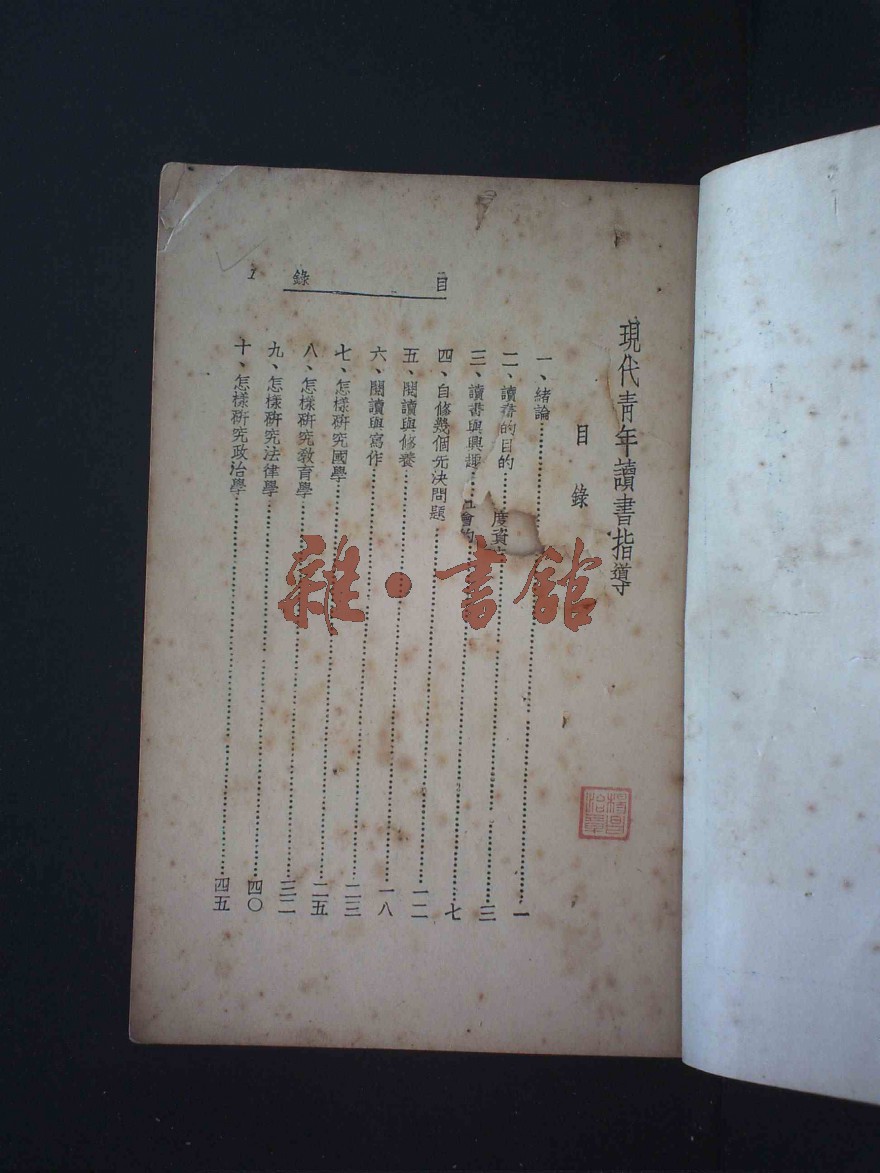 現代青年讀書指導
目錄
一、緒論⋯⋯一
二、讀書的目的⋯⋯三
三、讀書與興趣⋯⋯七
四、自修幾個先決問題⋯⋯一二
五、閱讀與修養⋯⋯一八
六、閱讀與寫作⋯⋯二三
七、怎樣研究國學⋯⋯二五
八、怎樣研究教育學⋯⋯三二
九、怎樣研究法律學⋯⋯四〇
十、怎樣研究政治學⋯⋯四五
目錄 1
會的
雜·書館